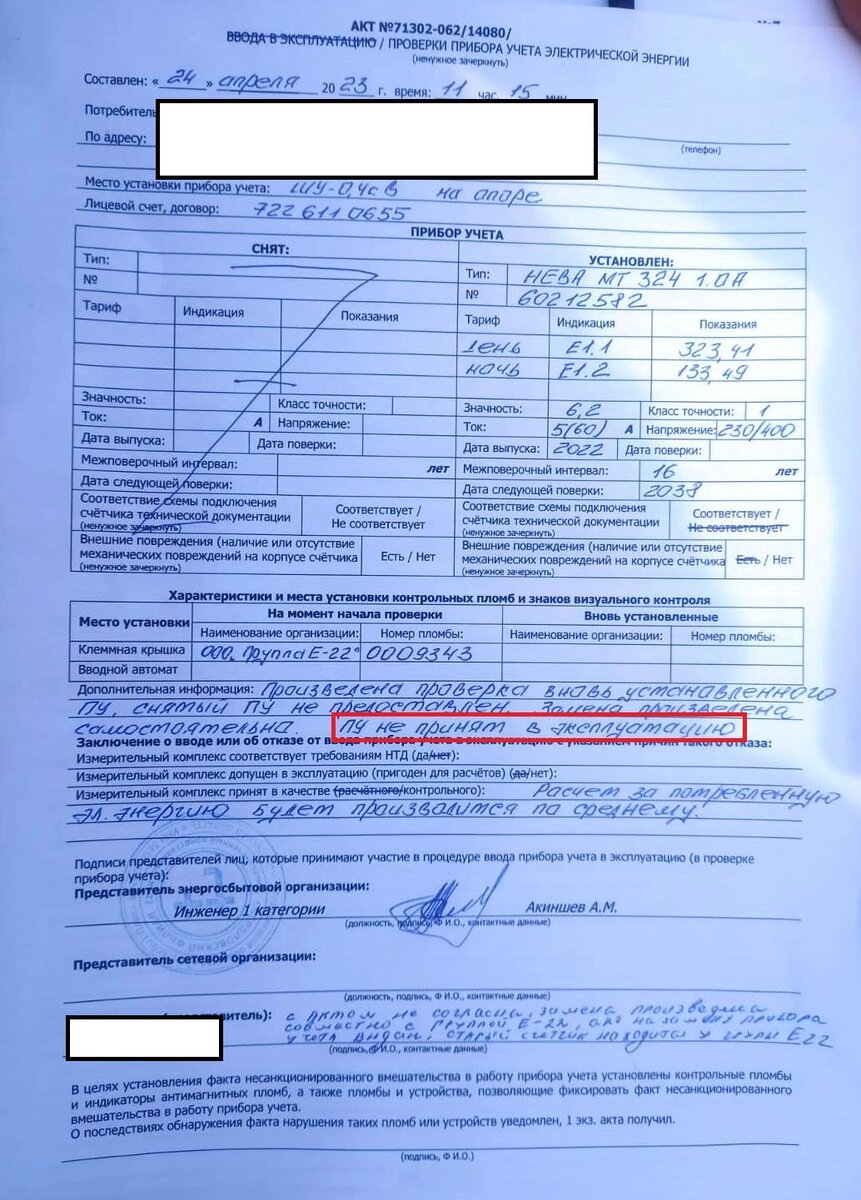 АКТ №71302-062/14080/
ВВОДА В ЭКСПЛУАТАЦИЮ / ПРОВЕРКИ ПРИБОРА УЧЕТА ЭЛЕКТРИЧЕСКОЙ ЭНЕРГИИ
(ненужное зачеркнуть)
Составлен: « 24 » апреля 20 23 г. время: 11 час. 15 мин.
Потребитель
По адресу:
(телефон)
Место установки прибора учета: ШУ-0,4 на опоре
Лицевой счет, договор: 7226110655
ПРИБОР УЧЕТА
СНЯТ: УСТАНОВЛЕН:
Тип: Тип: НЕВА МТ 324 1.0А
№ № 60212582
Тариф Индикация Показания Тариф Индикация Показания
день Е1.1 323,41
ночь Е1.2 133,49
Значность: Класс точности: Значность: 6,2 Класс точности: 1
Ток: А Напряжение: Ток: 5(60) А Напряжение: 230/400
Дата выпуска: Дата поверки: Дата выпуска: 2022 Дата поверки:
Межповерочный интервал: лет Межповерочный интервал: 16 лет
Дата следующей поверки: Дата следующей поверки: 2038
Соответствие схемы подключения счётчика технической документации (ненужное зачеркнуть) Соответствует / Не соответствует Соответствие схемы подключения счётчика технической документации (ненужное зачеркнуть) Соответствует / Не соответствует
Внешние повреждения (наличие или отсутствие механических повреждений на корпусе счётчика (ненужное зачеркнуть) Есть / Нет Внешние повреждения (наличие или отсутствие механических повреждений на корпусе счётчика (ненужное зачеркнуть) Есть / Нет
Характеристики и места установки контрольных пломб и знаков визуального контроля
Место установки На момент начала проверки Вновь установленные
Наименование организации: Номер пломбы: Наименование организации: Номер пломбы:
Клеммная крышка ООО "Группа Е-22" 0009343
Вводной автомат
Дополнительная информация: Произведена проверка вновь установленного
ПУ, снятый ПУ не предоставлен. Замена произведена
самостоятельна. ПУ не принят в эксплуатацию
Заключение о вводе или об отказе от ввода прибора учета в эксплуатацию с указанием причин такого отказа:
Измерительный комплекс соответствует требованиям НТД (да/нет):
Измерительный комплекс допущен в эксплуатацию (пригоден для расчётов) (да/нет):
Измерительный комплекс принят в качестве (расчётного/контрольного): Расчет за потребленную
эл. энергию будет производится по среднему.
Подписи представителей лиц, которые принимают участие в процедуре ввода прибора учета в эксплуатацию (в проверке
прибора учета):
Представитель энергосбытовой организации:
Инженер 1 категории Акиншев А.М.
(должность, подпись, Ф И.О., контактные данные)
Представитель сетевой организации:
(должность, подпись, Ф И.О., контактные данные)
с актом не согласна, замена произведена
совместно с группой Е-22, акт на замену прибора
учета выдан, старый счетчик находится у группы Е22
(подпись,Ф И.О., контактные данные)
В целях установления факта несанкционированного вмешательства в работу прибора учета установлены контрольные пломбы
и индикаторы антимагнитных пломб, а также пломбы и устройства, позволяющие фиксировать факт несанкционированного
вмешательства в работу прибора учета.
О последствиях обнаружения факта нарушения таких пломб или устройств уведомлен, 1 экз. акта получил.
(подпись, Ф И.О.)